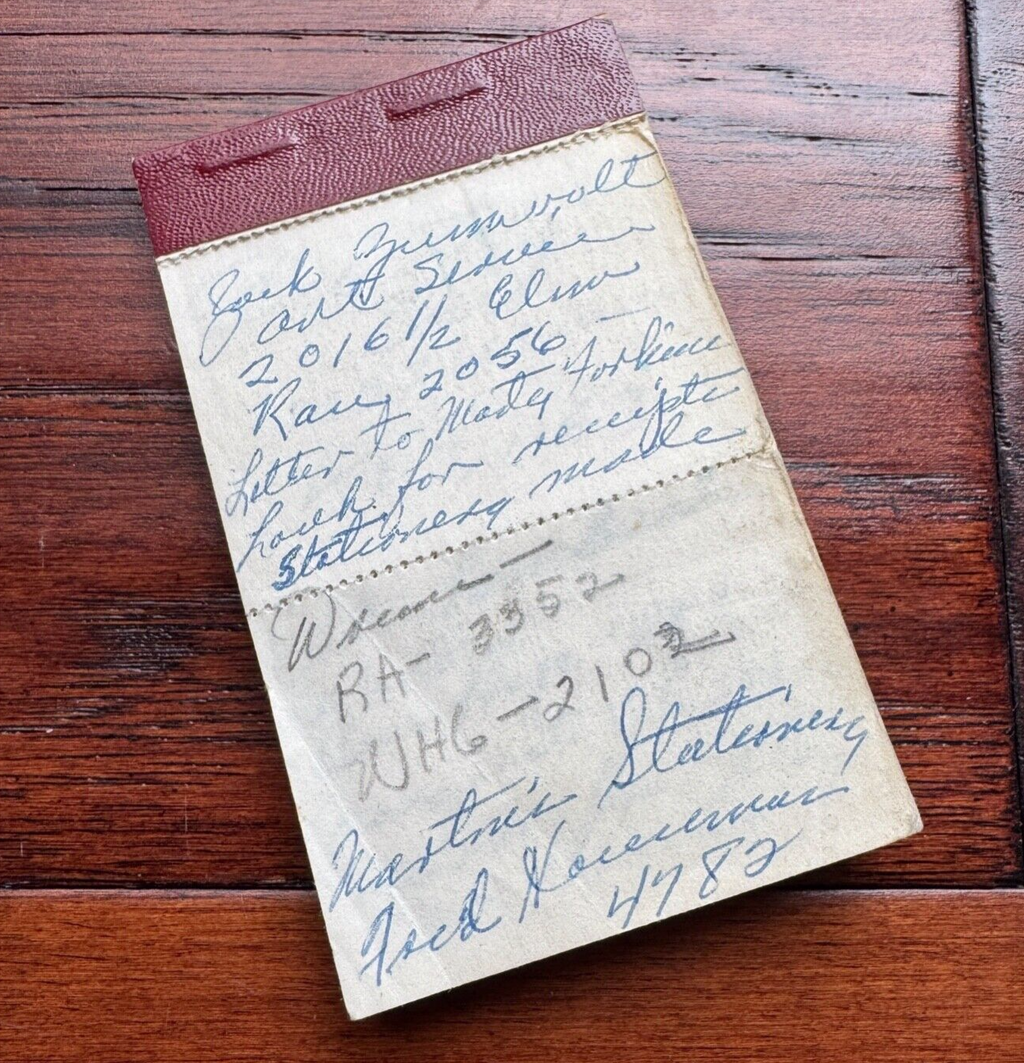 Jack Zumwolt
Art Service
2016 1/2 Elm
Ran, 2056 —
Letter to Mady
Look for receipts
Stationery made
RA- 3352
WH6 -2102
Martin Stationery
Fred
4782